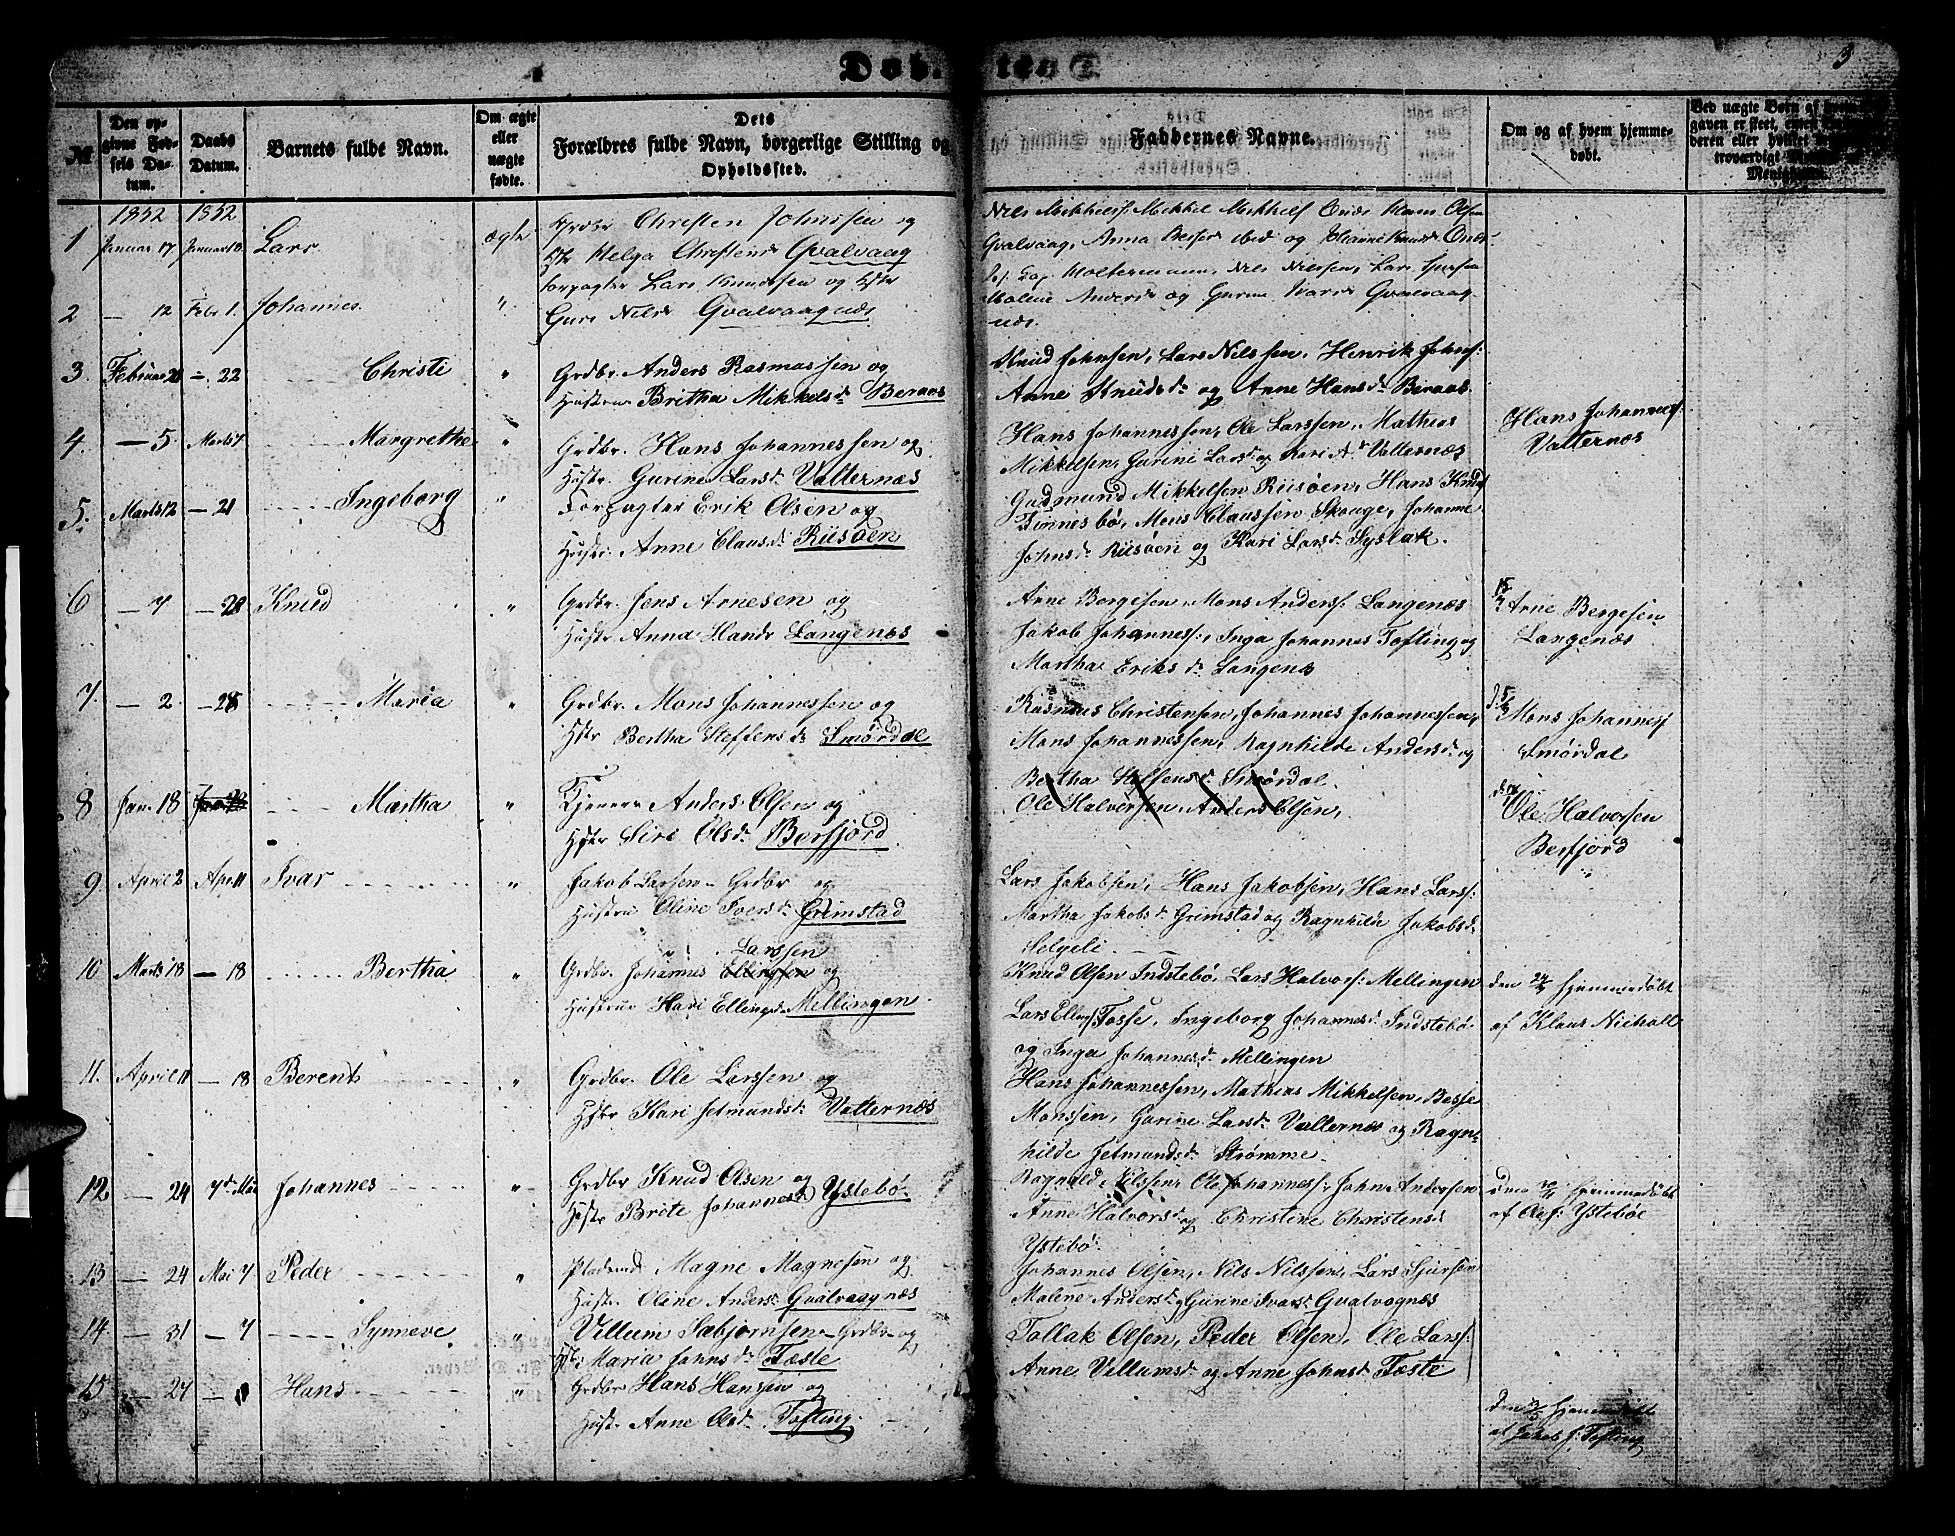 Døbte
3
№
Den opgivne Fødsels Datum.
Daabs Datum.
Barnets fulde Navn.
Om ægte eller uægte fødte.
Dets Forældres fulde Navn, borgerlige Stilling og Opholdssted.
Faddernes Navne.
Om og af hvem hjemmedøbt.
1852 1852
1 Januar 17 Januar 18. Lars ægte
Christen Johnssen og
Helga Christensdr Qvalvaag
Qvalvaag, Anna ibid og
2 — 12 Febr 1. Johannes "
Forpagter Lars Knudssen og Hstr
Guri Nilsdr Qvalvaagnæs
Moltermann, Nils Nilssen, Lars
Malene Andersdr og Gurine Ivarsdr Qvalvaag
næs.
3. Februar 20 — 22 Christi "
Grdbr. Anders Rasmussen og
Hustrue Britha Mikkelsdr Beraas
Knud Johnsen, Lars Nilssen, Henrik Johns:
Anne Knudsdr og Anne Hansdr Beraas
4. — 5. Marts 7 Margrethe "
Grdbr. Hans Johannessen og
Hustr. Gurine Larsd. Valternæs
Hans Johannessen, Ole Larssen, Mathias
Mikkelsen, Gurine Larsdr og Kari Valternæs
Hans Johannes:
Valternæs
5. Marts 12 — 21 Ingeborg "
Forpagter Erik Olsen og
Hustr. Anne Clausdr Riisøen
Gudmund Mikkelsen Riisøen, Hans Knuds
Finnesbø, Mons Claussen Skouge, Johanne
Johnsdr Riisøen og Kari Larsdr Syslak.
6 — 7 — 28 Knud "
Grdbr. Jens Arnesen og
Hustr Anna Hansdr Langenæs
Arne Bergesen, Mons Anders: Langenæs
Jakob Johanness:, Inga Johannes Tofting og
Martha Eriksdr Langenæs
Arne Bergesen
Langenæs
7. — 2. — 28 Maria "
Grdbr. Mons Johannessen og
Hstr Bertha Steffensdr Smørdal
Rasmus Christensen, Johannes Johannessen,
Mons Johannessen, Ragnhilde Andersdr og
Bertha Steffensdr Smørdal.
Mons Johannes:
Smørdal
8 Jan. 18 Martha "
Anders Olsen og
Hstr Siri Olsdr Berfjord
Ole Halvorsen, Anders Olsen,
Ole Halvorsen
Berfjord
9 April 2 Apr 11 Ivar "
Jakob Larsen Grdbr og
Hustrue Oline Iversdr Grimstad
Lars Jakobsen, Hans Jakobsen, Hans Lars:
Martha Jakobsdr Grimstad og Ragnhilde Jakobsdr
Selgeli
10 Marts 18 — 18 Bertha "
Larssen
Grdbr. Johannes Ellingsen og
Hustrue Kari Ellingsdr Mellingen
Knud Olsen Indstebø, Lars Halvors: Mellingen
Lars Ellings Fosse, Ingeborg Johannesdr Indstebø
og Inger Johannesdr Mellingen
den 24/ hjemmedøbt
af Klaus
11. April 11 — 18 Berent "
Grdbr. Ole Larssen og
Hstr Kari Jetmundsdr Valternæs
Hans Johannessen, Mathias Mikkelsen, Besse
Monssen, Gurine Larsdr Valternæs og Ragn-
hilde Jetmundsdr Strømme.
12 — 24 7d. Mai Johannes "
Grdbr Knud Olsen og
Hustr Brite Johannesdr Ystebø.
Rognald Nilssen, Ole Johanness: John Andersen
Anne Halvorsdr og Christine Christensd
Ystebø.
den hjemmedøbt
af Ystebøe
13 — 24 Mai 7 Peder "
Pladsmd Magne Magnesen og
Hustr. Oline Andersd. Qvalvaagnæs
Johannes Olsen, Nils Nilssen, Lars Sjursen
Malene Andersd. og Gurine Ivarsd. Qvalvognæs
14 — 31 — 7 Synneve "
Villum Sæbjørnsen Grdbr og
Hstr. Maria Jonnsdr Tæste
Tollak Olsen, Peder Olsen, Ole Lars:
Anne Villumsdr og Anne Johnsd Tæste
15 — 27 — Hans "
Grdbr Hans Hansen og
Hustr. Anne Olsd. Tofting.
den hjemmedøbt
af Jakob J: Tofting